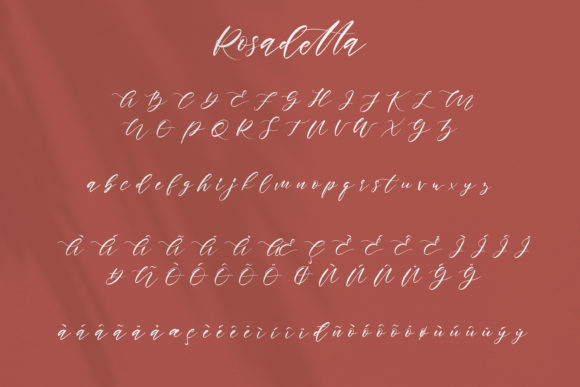 Rosadetta
A B C D E F G H I J K L M
N O P Q R S T U V W X Y Z
a b c d e f g h i j k l m n o p q r s t u v w x y z
À Á Â Ã Ä Å Æ Ç È É Ê Ë Ì Í Î Ï
Ð Ñ Ò Ó Ô Õ Ö Ø Ù Ú Û Ü Ý Ÿ
à á â ã ä å æ ç è é ê ë ì í î ï đ ñ ò ó ô õ ö ø ù ú û ü ý ÿ